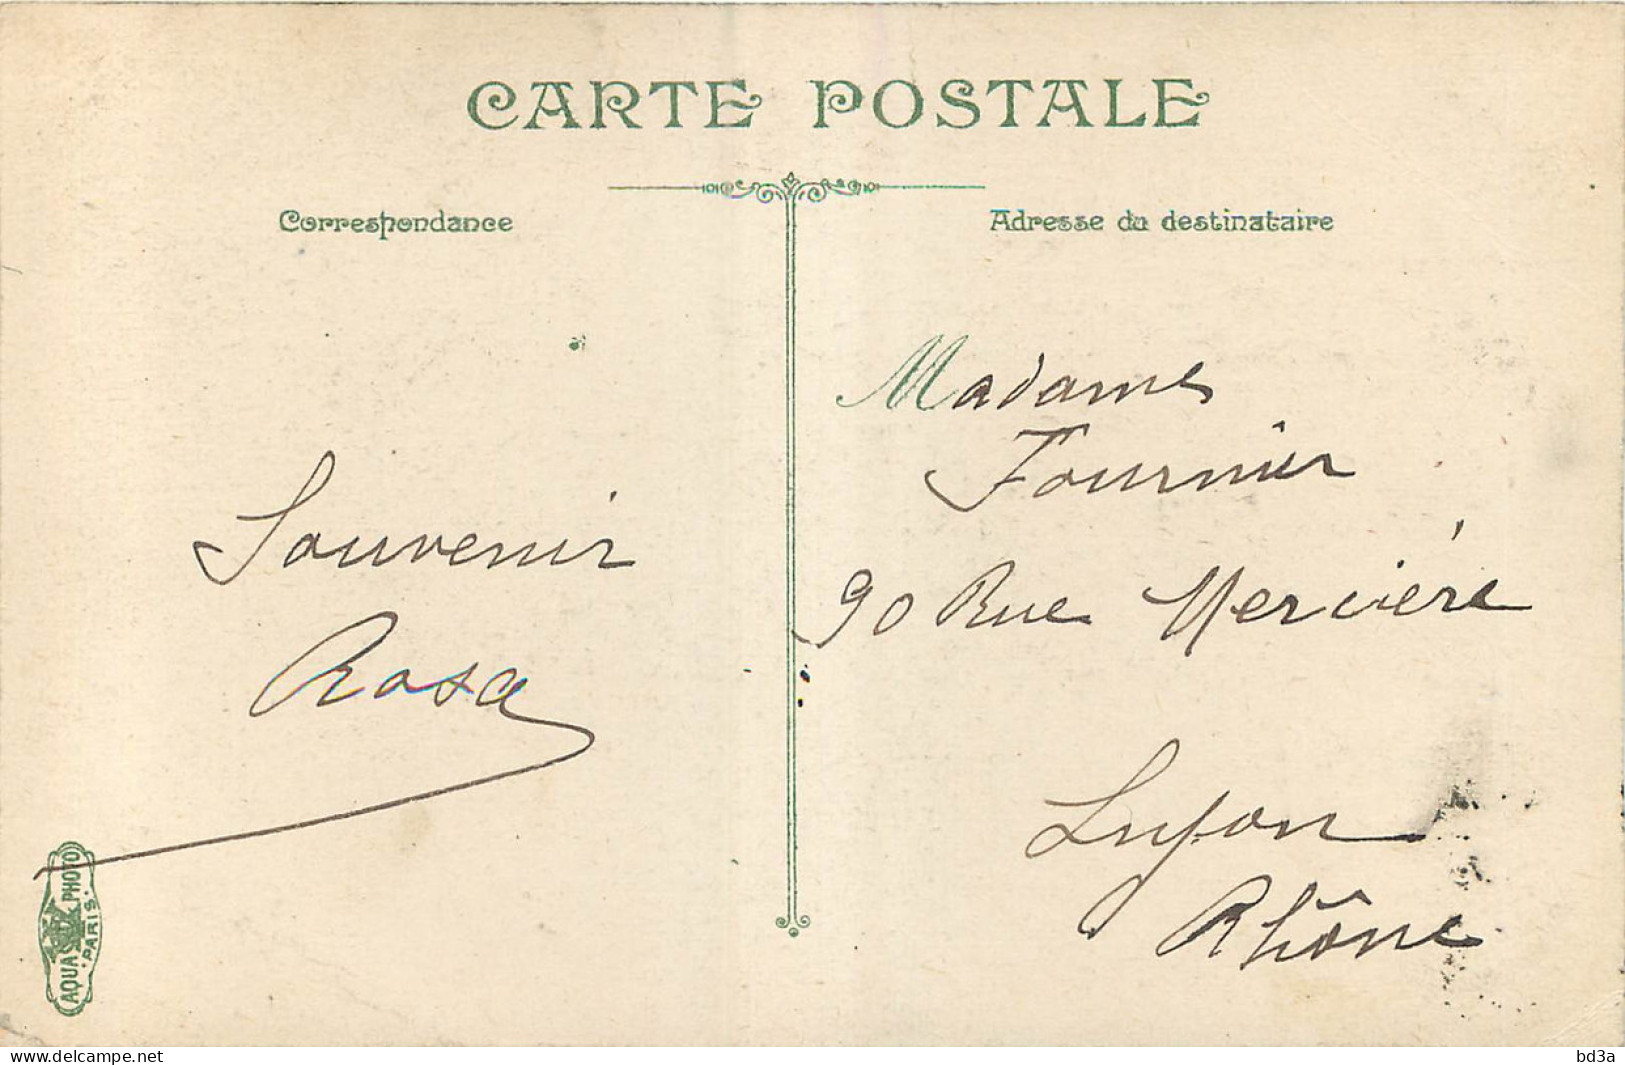 CARTE POSTALE
Correspondance
Adresse du destinataire
Souvenir
Rosa
Madame
Fournier
90 Rue Mercière
Lyon
Rhône
AQUA PHOTO
PARIS
www.delcampe.net
bd3a